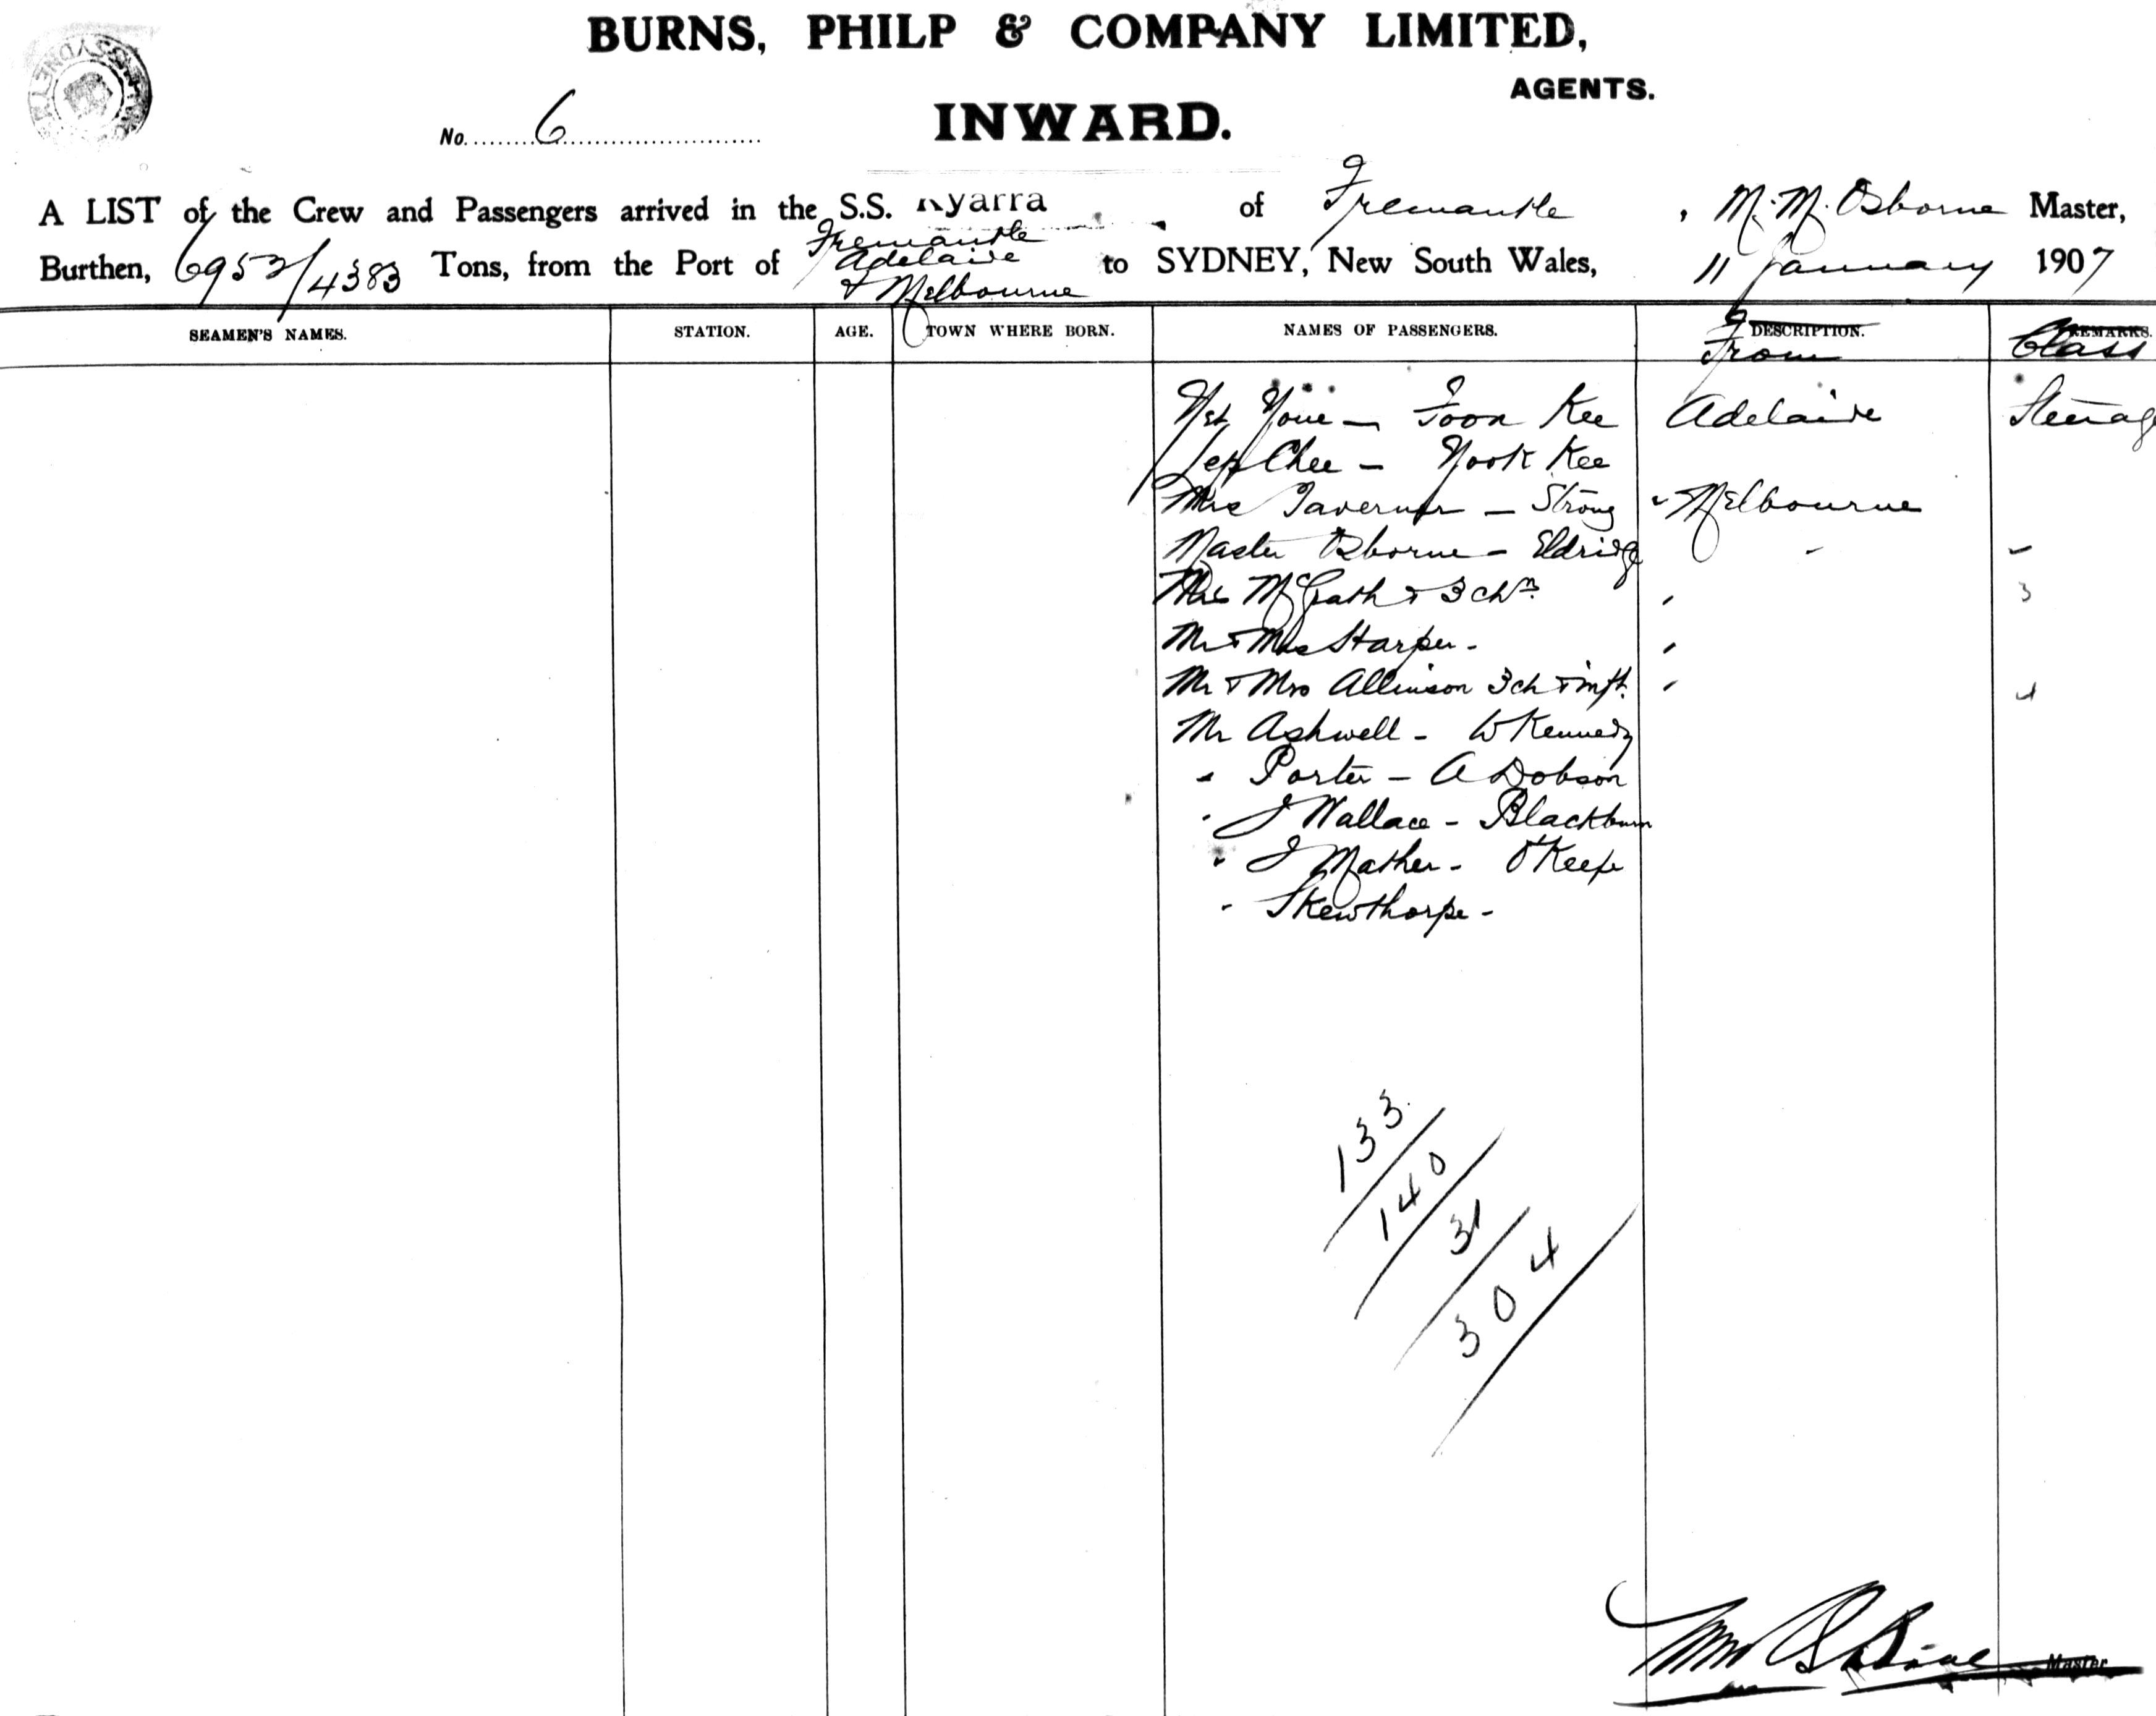 BURNS, PHILP & COMPANY LIMITED,
AGENTS.
No. 6 INWARD.
A LIST of the Crew and Passengers arrived in the S.S. Kyarra of Fremantle, M. M. Osborne Master,
Burthen, 6953/4383 Tons, from the Port of Fremantle Adelaide & Melbourne to SYDNEY, New South Wales, 11 January 1907
SEAMEN'S NAMES. STATION. AGE. TOWN WHERE BORN. NAMES OF PASSENGERS. DESCRIPTION. REMARKS.
From Class
Yet Youe — Foon Kee Adelaide Steerag
Chee — Yook Kee
Taverner — Strong " Melbourne
Master Osborne — Eldridge " "
Mrs McGrath & 3 chn. " 3
Mr & Mrs Harper - "
Mr & Mrs Allinson 3 ch & inft. " 4
Mr Ashwell - W Kennedy
" Porter - A Dobson
" J Wallace - Blackburn
" J Mather - O'Keefe
" Skewthorpe -
133
140
31
304
Master